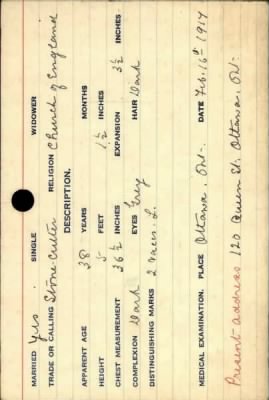 MARRIED Yes. SINGLE WIDOWER
TRADE OR CALLING Stone-cutter RELIGION Church of England
DESCRIPTION.
APPARENT AGE 38 YEARS MONTHS
HEIGHT 5 FEET 1½ INCHES
CHEST MEASUREMENT 36½ INCHES EXPANSION 3½ INCHES
COMPLEXION Dark EYES Grey HAIR Dark
DISTINGUISHING MARKS 2 Vacc. L.
MEDICAL EXAMINATION. PLACE Ottawa, Ont. DATE Feb. 16th 1917
Present address 120 Queen St. Ottawa, Ont.